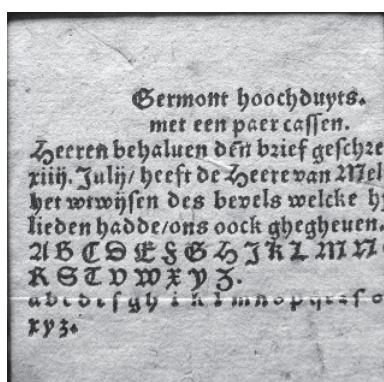 Germont hoochduyts.
met een paer cassen.
Heeren behaluen den brief geschre
xiiij. Julij/ heeft de Heere van Mel
het wtwijsen des bevels welcke h
lieden hadde/ons oock ghegheuen.
A B C D E F G H J K L M N
R S T V W X Y Z.
a b c d e f g h i k l m n o p q r s
x y z.